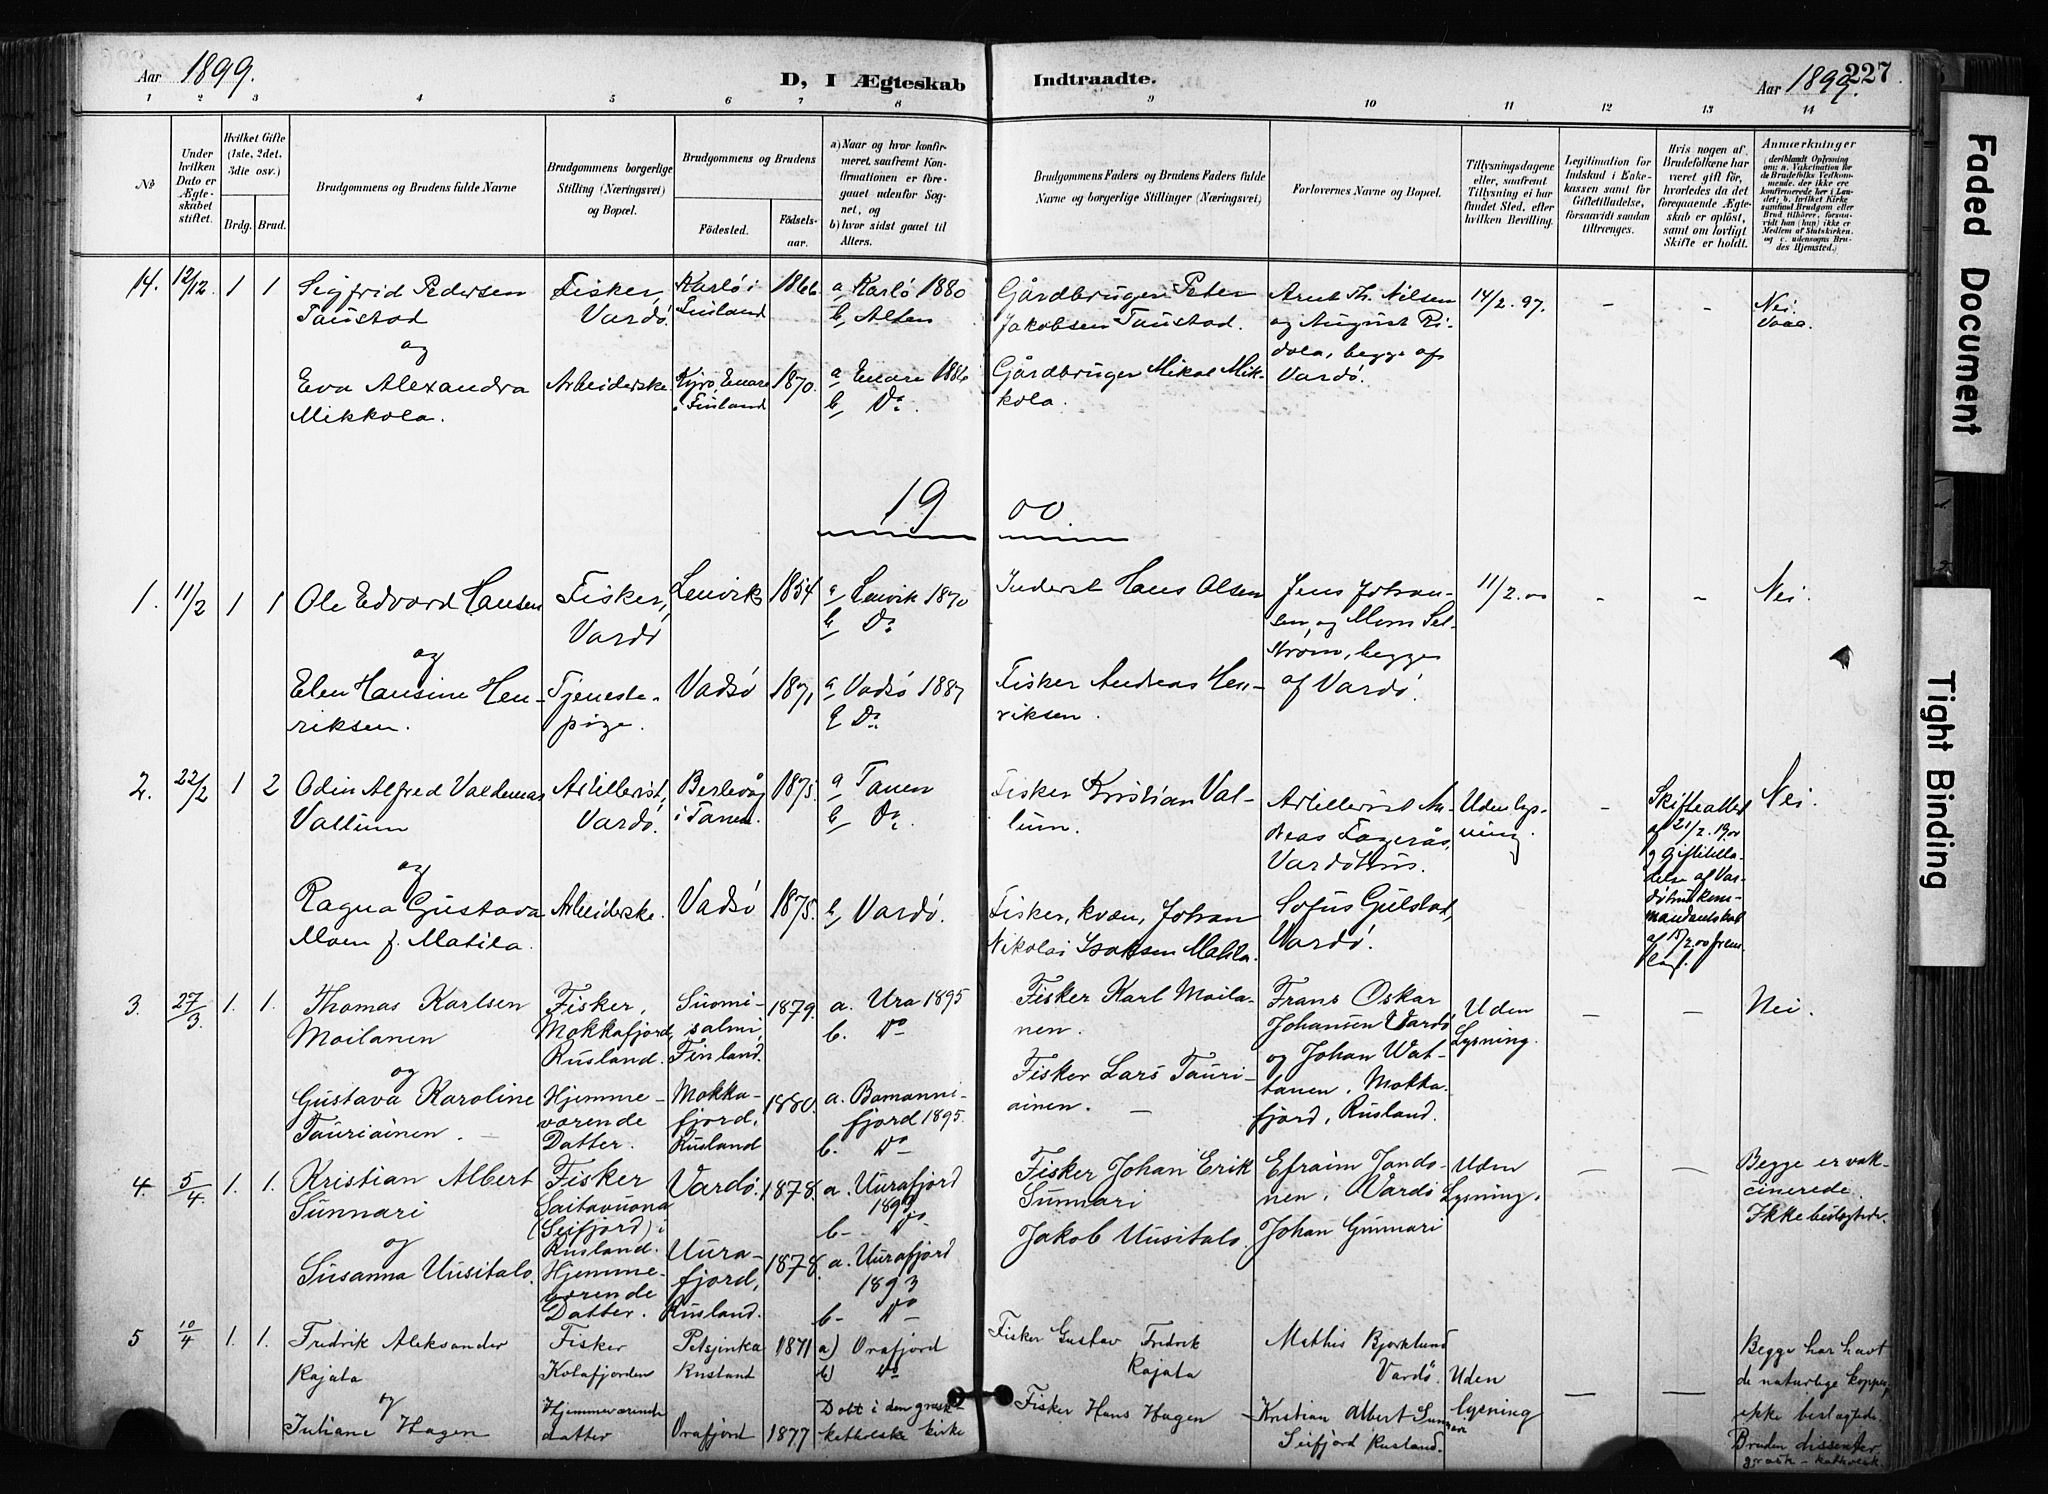 Aar 1899.
D, I Ægteskab
Indtraadte.
Aar 1899.
227
1 2 3 4 5 6 7 8 9 10 11 12 13 14
No
Under hvilken Dato er Ægteskabet stiftet.
Hvilket Gifte (1ste, 2det, 3die osv.)
Brdg. Brud.
Brudgommens og Brudens fulde Navne
Brudgommens borgerlige Stilling (Næringsvei) og Bopæl.
Brudgommens og Brudens
Födested.
Födselsaar.
a) Naar og hvor konfirmeret, saafremt Konfirmationen er foregaaet udenfor Sognet, og
b) hvor sidst gaaet til Alters.
Brudgommens Faders og Brudens Faders fulde Navne og borgerlige Stillinger (Næringsvei)
Forlovernes Navne og Bopæl.
Tillysningsdagene eller, saafremt Tillysning ei har fundet Sted, efter hvilken Bevilling.
Legitimation for Indskud i Enkekassen samt for Giftetilladelse, forsaavidt saadan tiltrænges.
Hvis nogen af Brudefolkene har været gift för, hvorledes da det foregaaende Ægteskab er oplöst, samt om lovligt Skifte er holdt.
Anmærkninger
14. 12/12. 1 1
Sigfrid Pedersen
Taustad
og
Eva Alexandra
Mikkola.
Fisker,
Vardö.
Arbeiderske.
Karlö i
Finland
Kyrö, Enare
i Finland
1866.
1870.
a Karlö 1880
b, Alten
a Enare 1886
b, Do.
Gårdbruger Peter
Jakobsen Taustad.
Gårdbruger Mikal Mikkola.
Arnt Th. Nilsen
og August Pi-
dola, begge af
Vardö.
14/2. 97.
-
-
Nei.
19 00.
1. 11/2 1 1
Ole Edvard Hansen
og
Elen Hansine Hen-
riksen.
Fisker,
Vardö
Tjeneste-
pige.
Lenvik
Vadsö
1854
1871
a, Lenvik 1870
b, Do
a, Vadsö 1887
b, Do.
Inderst Hans Olsen
Fisker Andreas Hen-
riksen.
Jens Johan-
sen, og Mons Sel-
strøm, begge
af Vardö.
11/2.00
-
-
Nei.
2. 22/2 1 2
Odin Alfred Valdemar
Vallum
og
Ragna Gustava
Moen f. Matila.
Artillerist,
Vardö.
Arbeiderske.
Berlevåg
i Tanen.
Vadsö
1875.
1875.
a, Tanen
b, Do.
b, Vardö.
Fisker Kristian Val-
lum.
Fisker, kvæn, Johan
Nikolai Isaksen Matila.
Artillerist An-
dreas Fagerås,
Vardöhus.
Sofus Gulstad,
Vardö.
Uden lys-
ning.
-
Skifteattest
af 21/2. 1900
og Giftetilla-
delse af Var-
döhus kom-
mandantskab
af 15/2.00 frem-
lagt.
Nei.
3. 27/3. 1. 1.
Thomas Karlsen
Moilanen
og
Gustava Karoline
Tauriainen. -
Fisker,
Mokkafjord,
Rusland.
Hjemme-
værende
Datter.
Suomi-
salmi,
Finland.
Mokka-
fjord,
Rusland
1879.
1880.
a. Ura 1895
b. Do -
a. Bomanni-
fjord 1895.
b. Do -
Fisker Karl Moila-
nen.
Fisker Lars Tauri-
ainen. -
Frans Oskar
Johansen Vardö,
og Johan Wat-
tanen. Mokka-
fjord, Rusland.
Uden
Lysning.
-
-
Nei.
4. 5/4. 1. 1.
Kristian Albert
Sunnari
og
Susanna Uusitalo.
Fisker
Saitavuona
(Seifjord) i
Rusland.
Hjemme-
værende
Datter.
Vardö.
Uura-
fjord,
Rusland.
1878.
1878.
a. Uurafjord
1893
b - Do -
a. Uurafjord
1893
b - Do -
Fisker Johan Erik
Sunnari
Jakob Uusitalo.
Efraim Jando-
nen. Vardö
Johan Gunnari
Uden
Lysning.
-
-
Begge er vak-
cinerede.
Ikke beslægtede.
5 10/4 1. 1.
Fredrik Aleksander
Rajala
og
Juliane Hagen
Fisker
Kolafjorden
Hjemmeværende
datter
Petsjinka
Rusland
Orafjord
1871
1877
a) Orafjord
b) Do
Döbt i den græsk
katholske kirke
Fisker Gustav Fredrik
Rajala
Fisker Hans Hagen
Mathis Bjorklund
Vardö.
Kristian Albert Sunnari
Seifjord Rusland.
Uden
lysning
-
-
Begge har havt
de naturlige kopper,
ikke beslægtede.
Bruden dissenter
græsk-katholsk.
Faded Document
Tight Binding